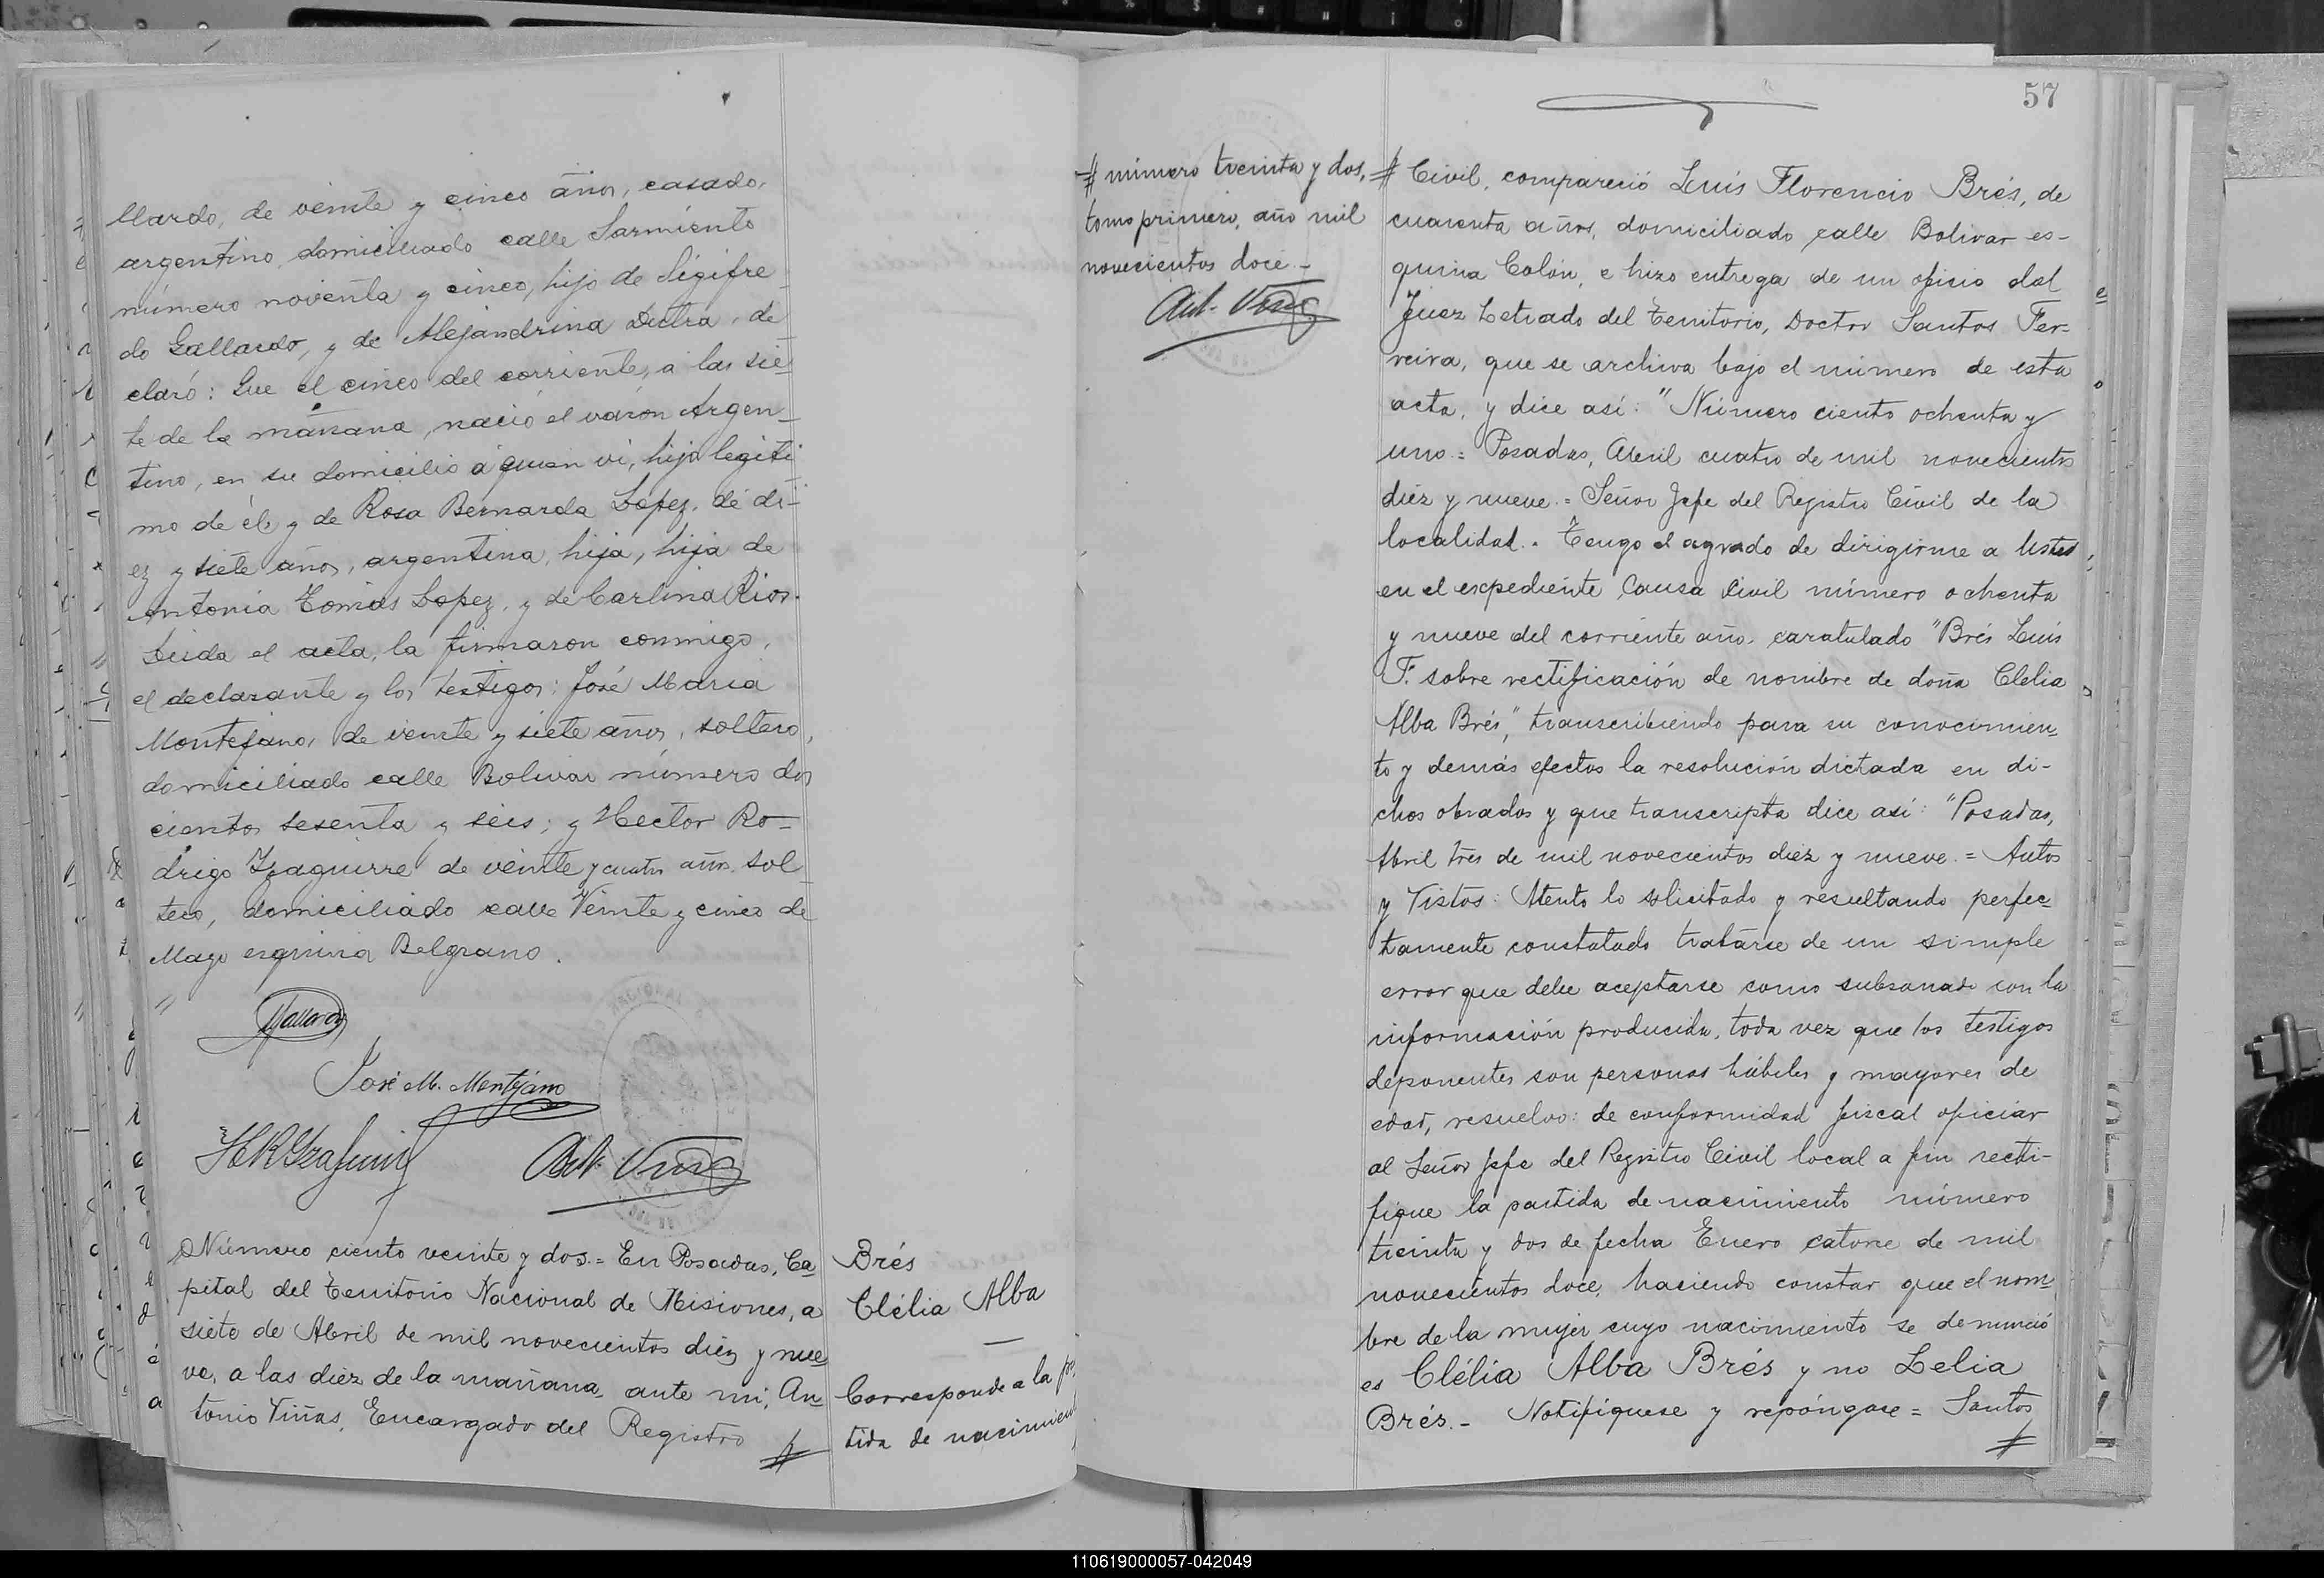 llardo, de veinte y cinco años, casado,
argentino, domiciliado calle Sarmiento
número noventa y cinco, hijo de Sigifre-
do Gallardo, y de Alejandrina Dutra, de
claró: Que el cinco del corriente, a las sie-
te de la mañana, nació el varón Argen-
tino, en su domicilio a quien vi, hijo legíti
mo de él, y de Rosa Bernarda Lopez, de di-
ez y siete años, argentina, hija, hija de
Antonia Tomás Lopez, y de Carlina Rios.
Leida el acta, la firmaron conmigo,
el declarante y los testigos: José Maria
Montejano, de veinte y siete años, soltero,
domiciliado calle Bolivar número dos
cientos sesenta y seis; y Hector Ro-
drigo Izaguirre de veinte y cuatro años sol
tero, domiciliado calle Veinte y cinco de
Mayo esquina Belgrano.
Gallardo
José M. Montejano
H R Izaguirre
Ant. Viñas
Número ciento veinte y dos.= En Posadas, Ca
pital del Territorio Nacional de Misiones, a
siete de Abril de mil novecientos diez y nue
ve, a las diez de la mañana, ante mi, An
tonio Viñas, Encargado del Registro #
Brés
Clélia Alba
Corresponde a la
tida de nacimien
57
# número treinta y dos,
tomo primero, año mil
novecientos doce.-
Ant. Viñas
# Civil, compareció Luis Florencio Brés, de
cuarenta años, domiciliado calle Bolivar es-
quina Colón, e hizo entrega de un oficio del
Juez Letrado del Territorio, Doctor Santos Fer-
reira, que se archiva bajo el número de esta
acta, y dice así: "Número ciento ochenta y
uno.= Posadas, Abril cuatro de mil novecientos
diez y nueve.= Señor Jefe del Registro Civil de la
localidad.- Tengo el agrado de dirigirme a Usted
en el expediente Causa Civil número ochenta
y nueve del corriente año, caratulado "Brés Luis
F. sobre rectificación de nombre de doña Clelia
Alba Brés," transcribiendo para su conocimien-
to y demás efectos la resolución dictada en di-
chos obrados y que transcripta dice así: "Posadas,
Abril tres de mil novecientos diez y nueve.= Autos
y Vistos: Atento lo solicitado y resultando perfec-
tamente constatado tratarse de un simple
error que debe aceptarse como subsanado con la
información producida, toda vez que los testigos
deponentes son personas hábiles y mayores de
edad, resuelvo: de conformidad fiscal oficiar
al Señor Jefe del Registro Civil local a fin recti-
fique la partida de nacimiento número
treinta y dos de fecha Enero catorce de mil
novecientos doce, haciendo constar que el nom-
bre de la mujer cuyo nacimiento se denunció
es Clélia Alba Brés y no Lelia
Brés.- Notifíquese y repóngase = Santos
#
110619000057-042049